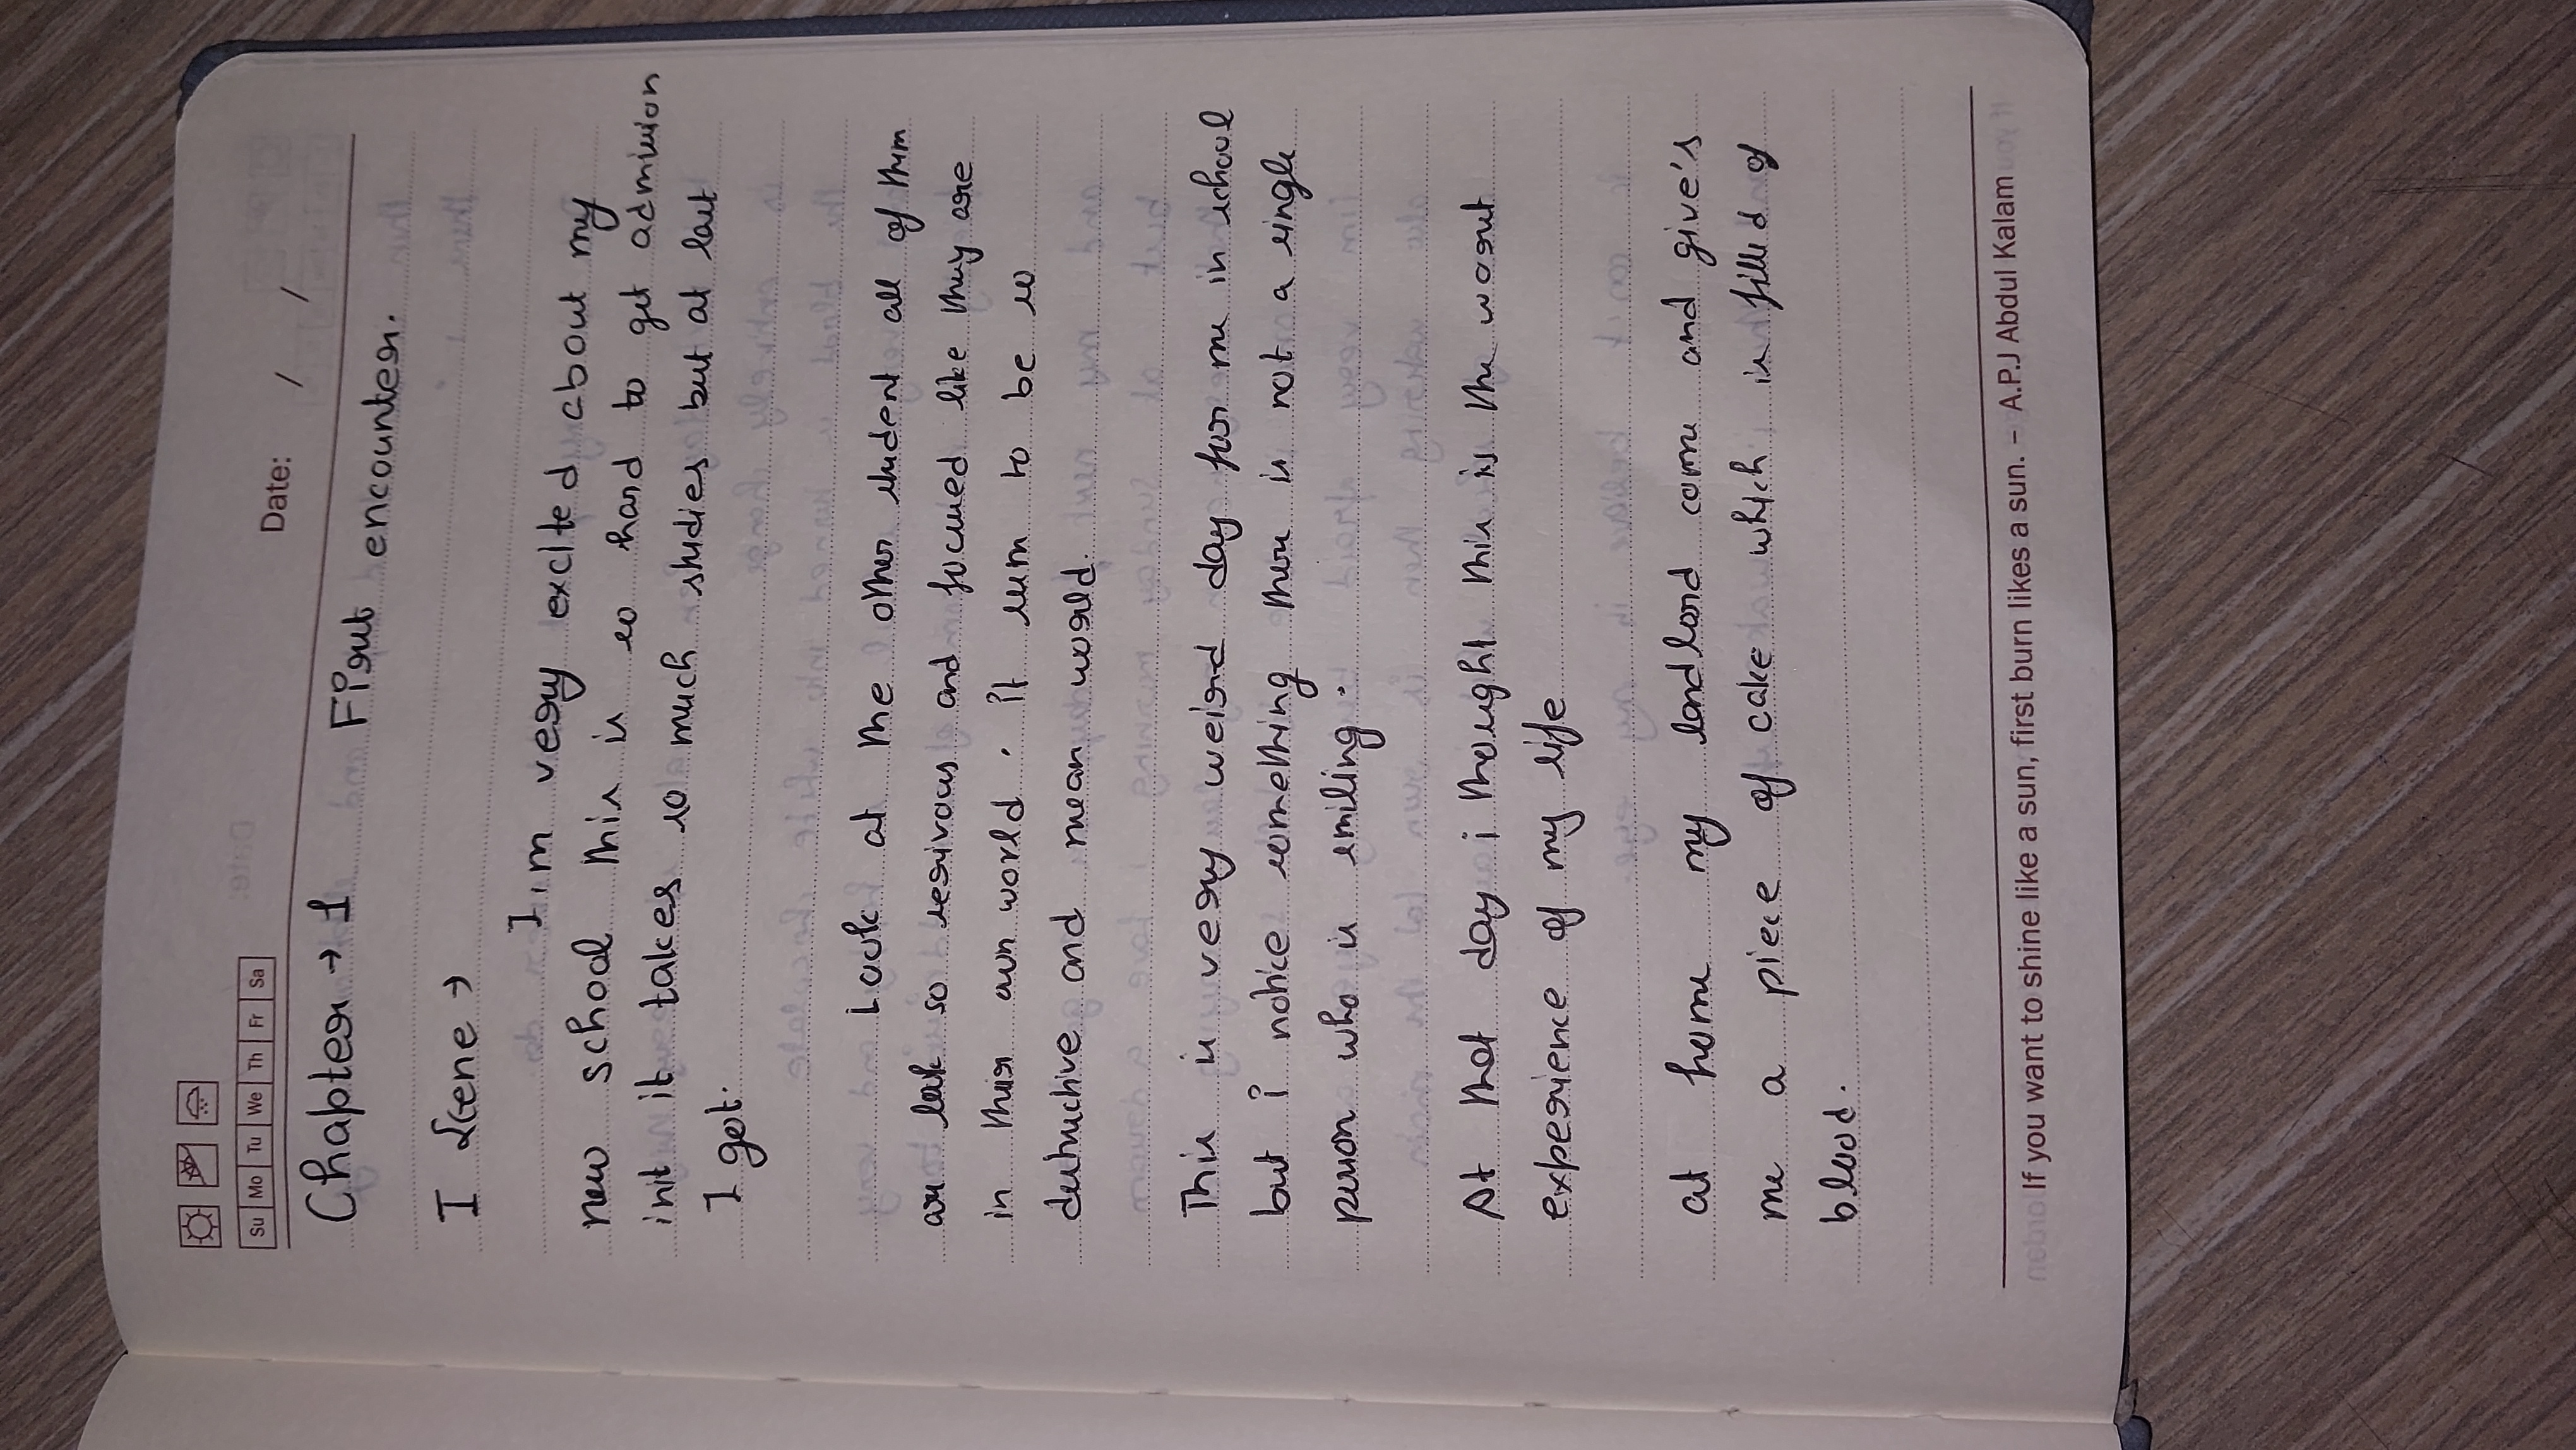 Su Mo Tu We Th Fr Sa
Date: / /
Chapter → 1 First encounter.
I Scene →
I'm very excited about my
new school this is so hard to get admission
init it takes so much studies but at last
I got.
Look at the other student all of them
are look so and focused like they are
in their own world. it seem to be so
destructive and mean world.
This is very weird day for me in school
but i notice something there is not a single
person who is smiling.
At that day i thought this is the worst
experience of my life
at home my landlord come and give's
me a piece of cake which is filled of
blood.
If you want to shine like a sun, first burn likes a sun. – A.P.J Abdul Kalam